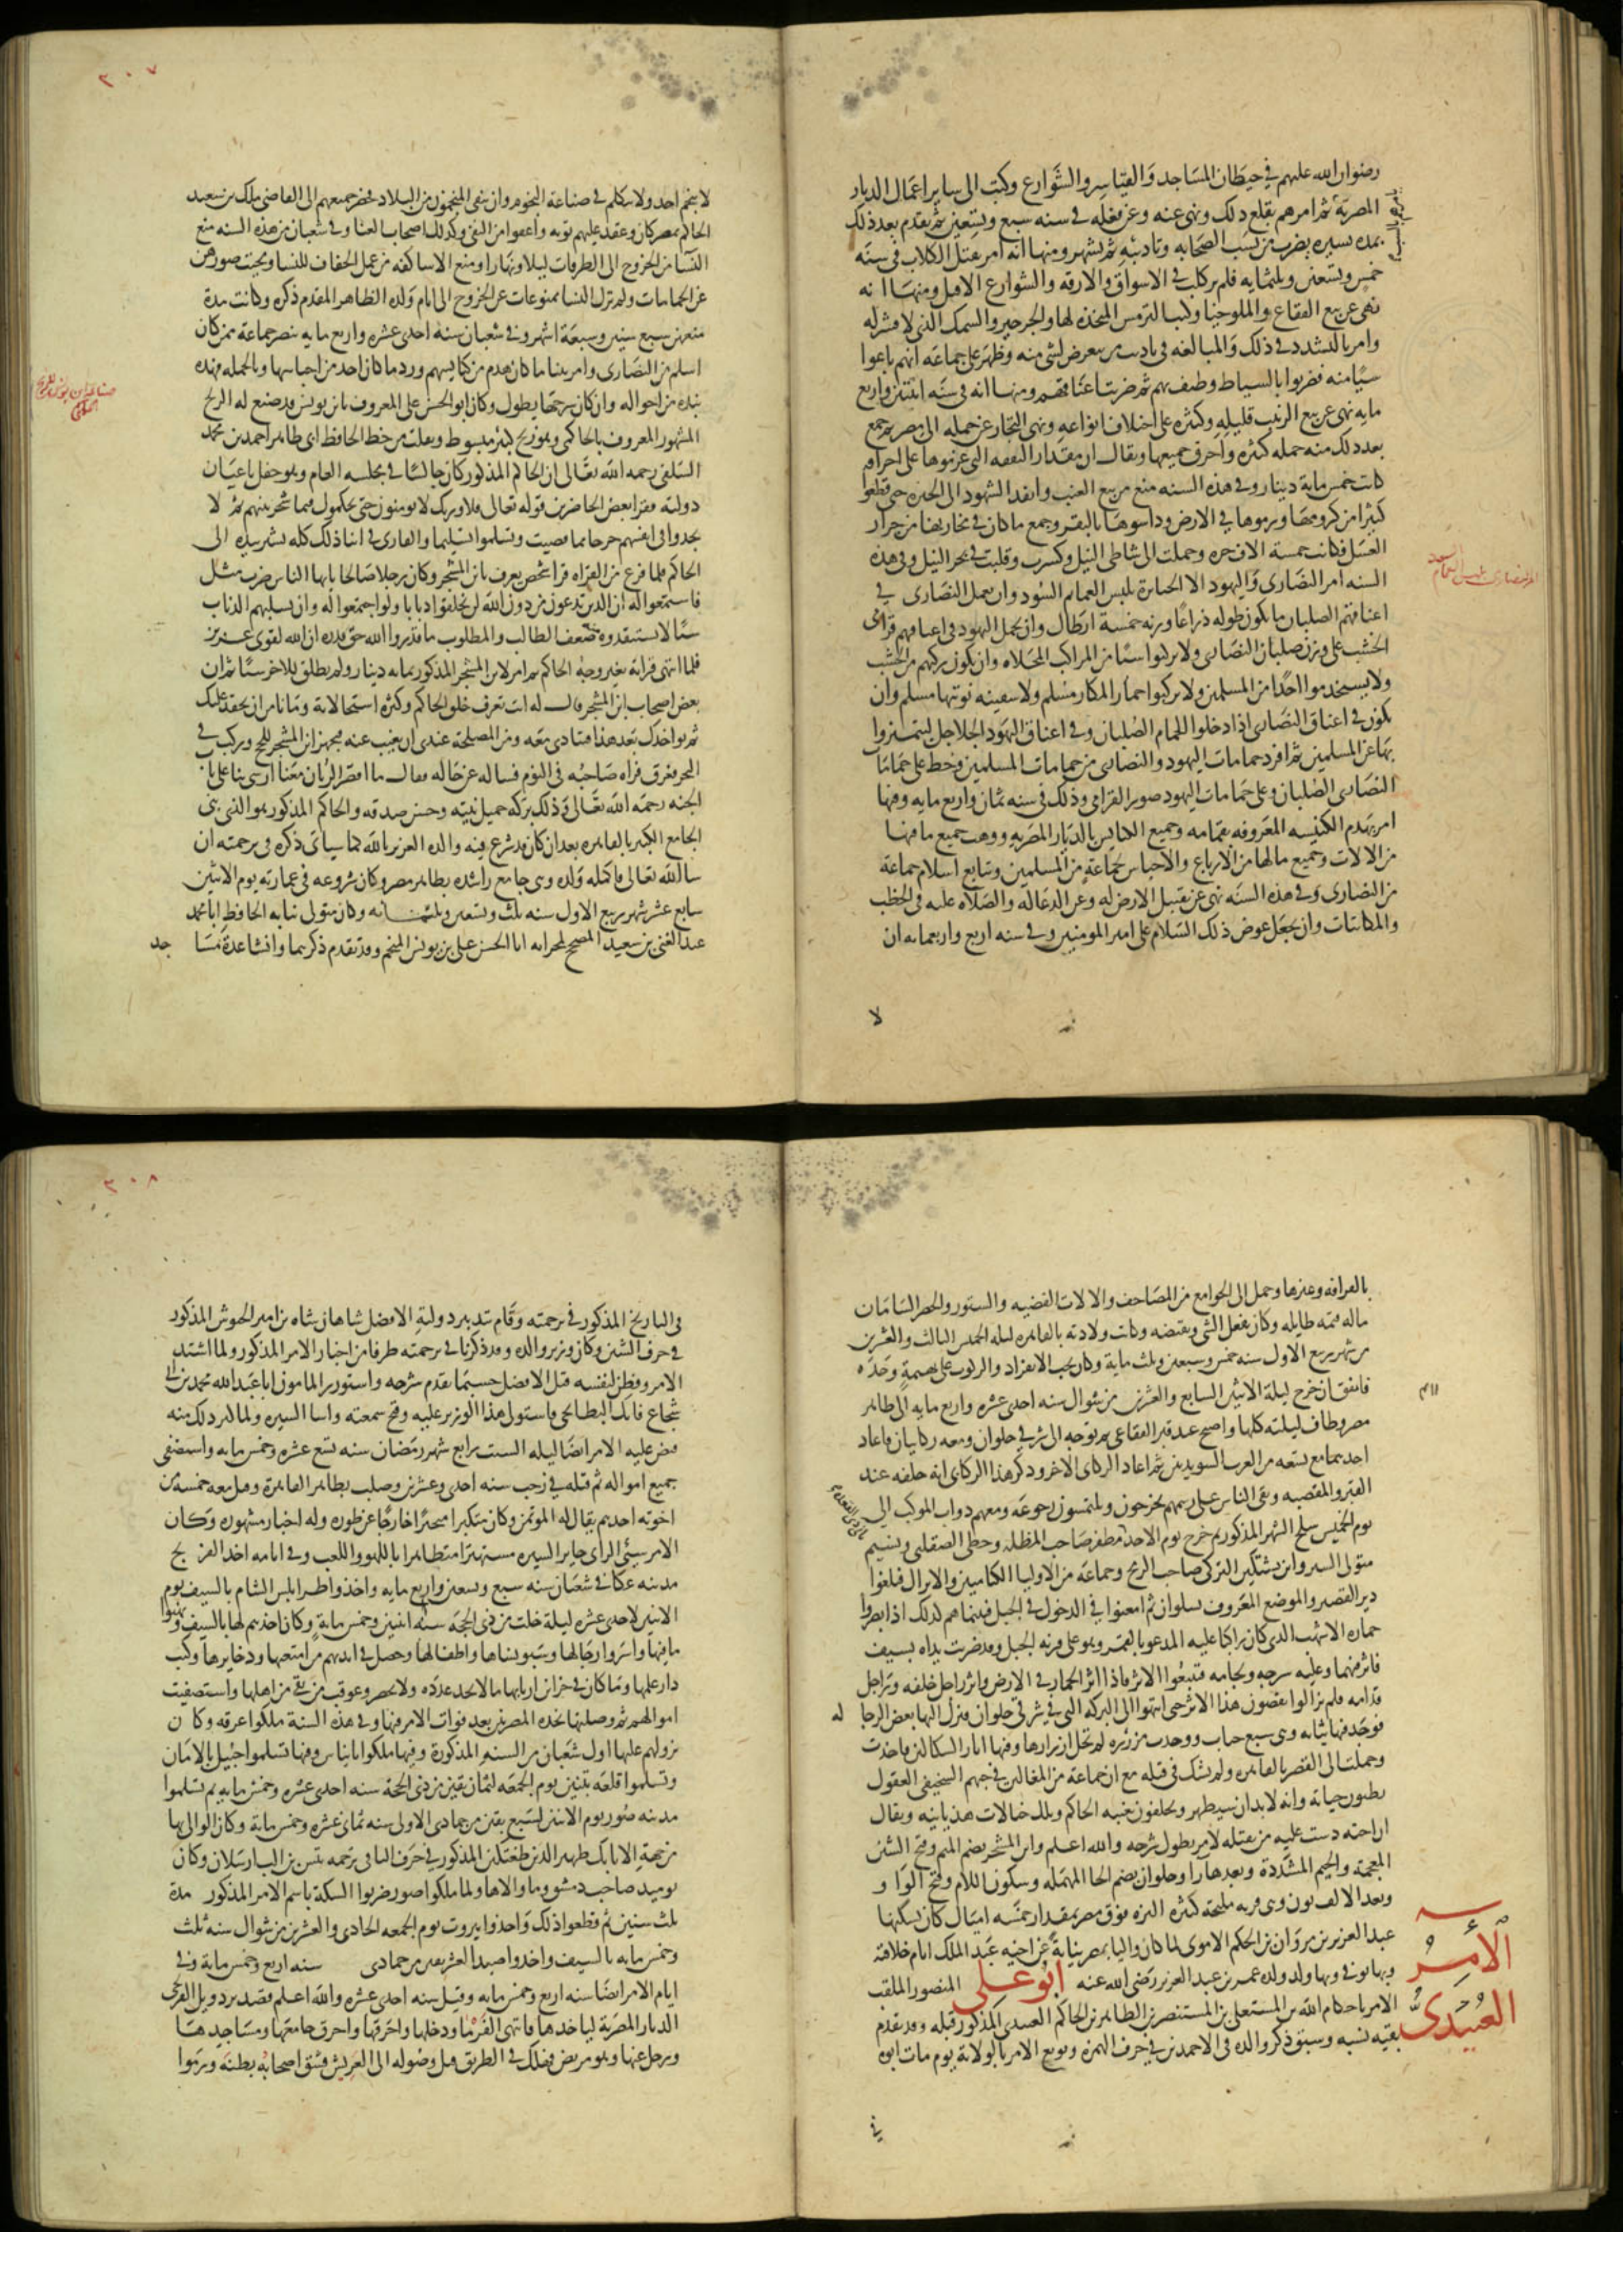 رضوان الله عليهم في حيطان المساجد والقياسر والشوارع وكتب الى ساير اعمال الديار
المصرية ثم امرهم بقلع ذلك ونهى عنه وعن فعله في سنه سبع وتسعين ثم تقدم بعد ذلك
بمده يسيره بضرب من يسب الصحابه وتاديبه ثم يشهر ومنها انه امر بقتل الكلاب في سنه
خمس وتسعين وثلثمايه فلم ير كلب في الاسواق والازقه والشوارع الا قتل ومنها انه
نهى عن بيع الفقاع والملوخيا وكبب الترمس المتخذه لها والجرجير والسمك الذي لا قشر له
وامر بالتشدد في ذلك والمبالغه في تاديب من يتعرض لشي منه وظهر على جماعه انهم باعوا
شيا منه فضربوا بالسياط وطيف بهم ثم ضربت اعناقهم ومنها انه في سنه اثنتين واربع
مايه نهى عن بيع الزبيب قليله وكثيره على اختلاف انواعه ونهى التجار عن حمله الى مصر ثم جمع
بعد ذلك منه جمله كثيره واحرق جميعها ويقال ان مقدار النفقه التي غرموها على احراقه
كانت خمس ماية دينار وفي هذه السنه منع من بيع العنب وانفذ الشهود الى الجيزه حتى قطعوا
كثيرا من كرومها ورموها في الارض وداسوها بالبقر وجمع ما كان في مخازنها من جرار
العسل فكانت خمسة الاف جره وحملت الى شاطى النيل وكسرت وقلبت في بحر النيل وفي هذه
السنه امر النصارى واليهود الا الحبابرة بلبس العمايم السود وان يعمل النصارى في
اعناقهم الصلبان ما يكون طوله ذراعا وزنه خمسة ارطال وان يحمل اليهود في اعناقهم قرامى
الخشب على وزن صلبان النصارى ولا يركبوا شيا من المراكب المحلاه وان يكون ركبهم من الخشب
ولا يستخدموا احدا من المسلمين ولا يركبوا حمارا لمكار مسلم ولا سفينه نوتيها مسلم وان
يكون في اعناق النصارى اذا دخلوا الحمام الصلبان وفي اعناق اليهود الجلاجل ليتميزوا
بها عن المسلمين ثم افرد حمامات اليهود والنصارى من حمامات المسلمين وحط على حمامات
النصارى الصلبان وعلى حمامات اليهود صور القرامى وذلك في سنه ثمان واربع مايه وفيها
امر بهدم الكنيسه المعروفه بقمامه وجميع الكنايس بالديار المصريه ووهب جميع ما فيها
من الالات وجميع مالها من الارباع والاحباس لجماعة من المسلمين وتتابع اسلام جماعة
من النصارى وفي هذه السنه نهى عن تقبيل الارض له وعن الدعا له والصلاه عليه في الخطب
والمكاتبات وان يجعل عوض ذلك السلام على امير المومنين وفي سنه اربع واربعمايه ان
لا
امر النصارى بلبس العمايم السود
٢٠٧
لا ينجم احد ولا يتكلم في صناعة النجوم وان ينفى المنجمون من البلاد فحضر جميعهم الى القاضي مالك بن سعيد
الحاكم بمصر كان وعقد عليهم توبه واعفوا من النفى وكذلك اصحاب الغنا وفي شعبان من هذه السنه منع
النسا من الخروج الى الطرقات ليلا ونهارا ومنع الاساكفه من عمل الخفاف للنسا ومحيت صورهن
عن الحمامات ولم تزل النسا ممنوعات عن الخروج الى ايام ولده الظاهر المقدم ذكره وكانت مدة
منعهن سبع سنين وسبعة اشهر وفي شعبان سنة احدى عشره واربع مايه تنصر جماعة ممن كان
اسلم من النصارى وامر ببنا ما كان هدم من كنايسهم ورد ما كان احد من احباسها وبالجمله فهذه
نبذه من احواله وان كان شرحها يطول وكان ابو الحسن على المعروف بابن يونس قد صنع له الزيج
المشهور المعروف بالحاكمى وهو زيج كبير مبسوط ونقلت من خط الحافظ ابى طاهر احمد بن محمد
السلفى رحمه الله تعالى ان الحاكم المذكور كان جالسا في مجلسه العام وهو حفل باعيان
دولته فقرا بعض الحاضرين قوله تعالى فلا وربك لا يومنون حتى يحكموك فيما شجر بينهم ثم لا
يجدوا في انفسهم حرجا مما قضيت ويسلموا تسليما والقارى في اثنا ذلك كله يشير بيده الى
الحاكم فلما فرغ من القراه قرا شخص يعرف بابن المشجر وكان رجلا صالحا يا ايها الناس ضرب مثل
فاستمعوا له ان الذين تدعون من دون الله لن يخلقوا ذبابا ولو اجتمعوا له وان يسلبهم الذباب
شيا لا يستنقذوه منه ضعف الطالب والمطلوب ما قدروا الله حق قدره ان الله لقوى عزيز
فلما انتهى قراته تغير وجه الحاكم ثم امر لابن المشجر المذكور بمايه دينار ولم يطلق للاخر شيا ثم ان
بعض اصحاب ابن المشجر قال له انت تعرف خلق الحاكم وكثره استحالاته وما نامن ان يحقد عليك
ثم يواخذك بعد هذا فتتاذى معه ومن المصلحة عندى ان تغيب عنه فتجهز ابن المشجر للحج وركب في
البحر فغرق فراه صاحبه في النوم فساله عن حاله فقال ما اقصر الربان معنا ارسى بنا على باب
الجنه رحمه الله تعالى وذلك ببركه جميل نيته وحسن صدقه والحاكم المذكور هو الذى بنى
الجامع الكبير بالقاهره بعد ان كان قد شرع فيه والده العزيز بالله كما سياتى ذكره في ترجمته ان
شا الله تعالى فاكمله ولده وبنى جامع راشده بظاهر مصر وكان شروعه في عمارته يوم الاثنين
سابع عشر شهر ربيع الاول سنه ثلث وتسعين وثلثمايه وكان متولى بنايه الحافظ ابا محمد
عبد الغنى بن سعيد والمصحح لمحرابه ابا الحسن على بن يونس المنجم وقد تقدم ذكرهما وانشا عدة مسا جد
صناعة ابن يونس للزيج الحاكمى
بالقرافه وغيرها وحمل الى الجوامع من المصاحف والالات الفضيه والستور والحصر السامان
ماله قيمه طايله وكان يفعل الشى وينقضه وكانت ولادته بالقاهره ليله الخميس الثالث والعشرين
من شهر ربيع الاول سنه خمس وسبعين وثلث ماية وكان يحب الانفراد والركوب على بهيمة وحده
فاتفق ان خرج ليلة الاثنين السابع والعشرين من شوال سنه احدى عشره واربع مايه الى ظاهر
مصر وطاف ليلته كلها واصبح عند قبر الفقاعى ثم توجه الى شرقى حلوان ومعه ركابيان فاعاد
احدهما مع تسعه من العرب السويديين ثم اعاد الركابى الاخر وذكر هذا الركابى انه خلفه عند
القبر والمقصبه وبقى الناس على رسمهم يخرجون ويلتمسون رجوعه ومعهم دواب الموكب الى
يوم الخميس سلخ الشهر المذكور ثم خرج يوم الاحد مظفر صاحب المظله وحطى الصقلبى ونسيم
متولى الستر وابن بشتكين التركى صاحب الرمح وجماعه من الاوليا الكتاميين والاتراك فبلغوا
دير القصير والموضع المعروف بسلوان ثم امعنوا في الدخول في الجبل فبينما هم لذلك اذا بصروا
حماره الاشهب الذى كان راكبا عليه المدعو بالقمر وهو على قرنه الجبل وقد ضربت يداه بسيف
فاثر فيهما وعليه سرجه ولجامه فتتبعوا الاثر فاذا اثر الحمار في الارض واثر راجل خلفه وراجل
قدامه فلم يزالوا يقصون هذا الاثر حتى انتهوا الى البركه التى في شرقى حلوان فنزل اليها بعض الرجا له
فوجد فيها ثيابه وهى سبع جباب ووجدت مزرره لم تحل ازرارها وفيها اثار السكاكين فاخذت
وحملت الى القصر بالقاهره ولم يشك في قتله مع ان جماعة من المغالين في حبهم السخيفى العقول
يظنون حياته وانه لا بد ان سيظهر ويحلفون بغيبه الحاكم وتلك خيالات هذيانيه ويقال
ان اخته دست عليه من يقتله لامر يطول شرحه والله اعلم وابن المشجر بضم الميم وفتح الشين
المعجمة والجيم المشددة وبعدها را وحلوان بضم الحا المهمله وسكون اللام وفتح الواو و
وبعد الالف نون وهى قريه مليحة كثيره النزه فوق مصر بمقدار خمسه اميال كان يسكنها
عبد العزيز بن مروان بن الحكم الاموى لما كان واليا بمصر نيابة عن اخيه عبد الملك ايام خلافته
وبها توفى وبها ولد ولده عمر بن عبد العزيز رضى الله عنه ابو على المنصور الملقب
الامر باحكام الله بن المستعلى بن المستنصر بن الظاهر بن الحاكم العبيدى المذكور قبله وقد تقدم
بقيه نسبه وسبق ذكر والده في الاحمدين في حرف الهمزه وبويع الامر بالولاية يوم مات ابوه
في
الآمر
العبيدى
٢٠٨
في التاريخ المذكور في ترجمته وقام بتدبير دولة الافضل شاهان شاه بن امير الجيوش المذكور
في حرف الشين وكان وزير والده وقد ذكرنا في ترجمته طرفا من اخبار الامر المذكور ولما اشتد
الامر وفطن لنفسه قتل الافضل حسبما تقدم شرحه واستوزر المامون ابا عبد الله محمد بن ابى
شجاع فاتك البطايحى فاستولى هذا الوزير عليه وقبح سمعته واسا السيره ولما كثر ذلك منه
قبض عليه الامر ايضا ليله السبت رابع شهر رمضان سنه تسع عشره وخمس مايه واستصفى
جميع امواله ثم قتله في رجب سنه احدى وعشرين وصلب بظاهر القاهرة وقتل معه خمسة من
اخوته احدهم يقال له الموتمن وكان متكبرا متجبرا خارجا عن طوره وله اخبار مشهوره وكان
الامر سيئ الراى جاير السيره مستهترا متظاهرا باللهو واللعب وفي ايامه اخذ الفرنج
مدينه عكا في شعبان سنه سبع وتسعين واربع مايه واخذوا طرابلس الشام بالسيف يوم
الاثنين لاحدى عشره ليلة خلت من ذى الحجه سنه اثنين وخمس ماية وكان اخذهم لها بالسيف ونهبوا
ما فيها واسروا رجالها وسبوا نساها واطفالها وحصل في ايديهم من امتعتها وذخايرها وكتب
دار علمها وما كان في خزاين اربابها ما لا يحد عدده ولا يحصر وعوقب من بقى من اهلها واستصفيت
اموالهم ثم وصلتها نجده المصريين بعد فوات الامر فيها وفي هذه السنة ملكوا عرقه وكان
نزولهم عليها اول شعبان من السنه المذكورة وفيها ملكوا بانياس وفيها تسلموا جبيل بالامان
وتسلموا قلعه تبنين يوم الجمعه لثمان بقين من ذى الحجة سنه احدى عشره وخمس مايه ثم تسلموا
مدينه صور يوم الاثنين لسبع بقين من جمادى الاولى سنه ثمانى عشره وخمس ماية وكان الوالى بها
من جهة الاتابك ظهير الدين طغتكين المذكور في حرف التا في ترجمه تتش بن الب ارسلان وكان
يوميذ صاحب دمشق وما والاها ولما ملكوا صور ضربوا السكة باسم الامر المذكور مدة
ثلث سنين ثم قطعوا ذلك واخذوا بيروت يوم الجمعه الحادى والعشرين من شوال سنه ثلث
وخمس مايه بالسيف واخذوا صيدا لعشر بقين من جمادى سنه اربع وخمس ماية وفي
ايام الامر ايضا سنه اربع وخمس مايه وقيل سنه احدى عشره والله اعلم قصد بردويل الفرنجى
الديار المصرية لياخذها فانتهى الى الفرما ودخلها واحرقها واحرق جامعها ومساجدها
ورحل عنها وهو مريض فهلك في الطريق قبل وصوله الى العريش فشق اصحابه بطنه ورموا